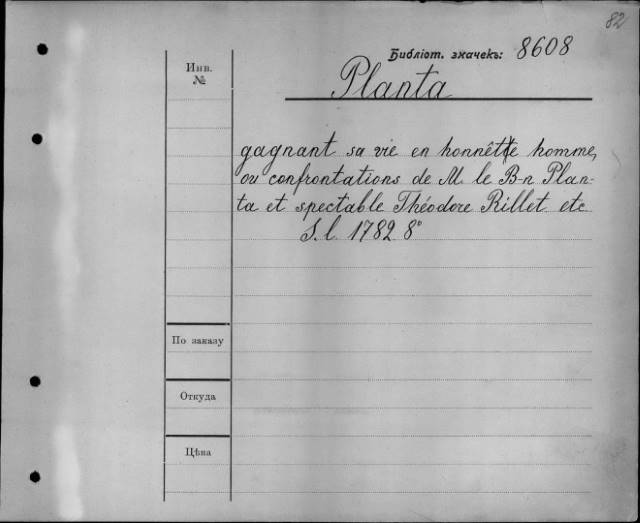 82
Библіот. значекъ: 8608
Инв.
№
Planta
gagnant sa vie en honnêtte homme,
ou confrontations de M. le B-n Plan-
ta et spectable Théodore Rillet etc
S.l. 1782 8°
По заказу
Откуда
Цѣна